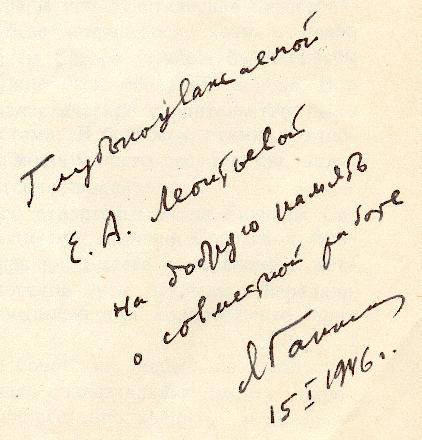 Глубокоуважаемой
Е. А. Леонтьевой
на добрую память
о совместной работе
15 I 1946 г.